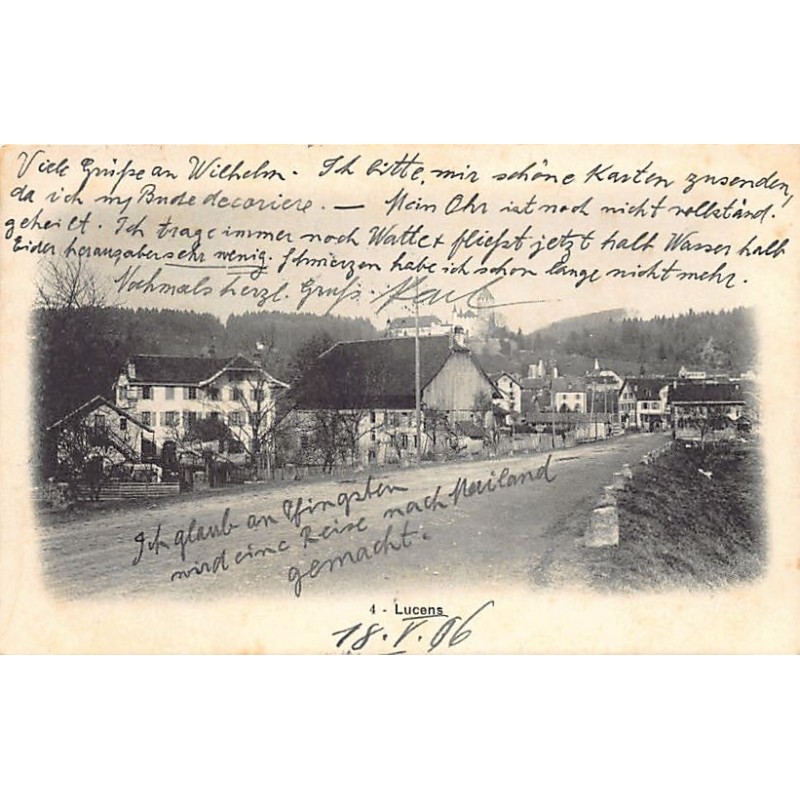 Viele Grüße an Wilhelm. Ich bitte, mir schöne Karten zusenden,
da ich my Bude decoriere. — Mein Ohr ist noch nicht vollständ.
geheilt. Ich trage immer noch Watte & fließt jetzt halb Wasser halb
Eider heraus, aber sehr wenig. Schmerzen habe ich schon lange nicht mehr.
Nochmals herzl. Gruß. Karl
Ich glaub an Pfingsten
wird eine Reise nach Mailand
gemacht.
4 - Lucens
18. V. 06